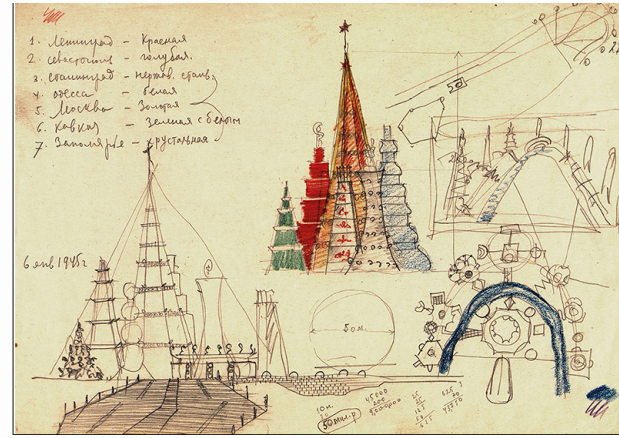 1. Ленинград – Красная
2. Севастополь – голубая.
3. Сталинград – нержав. сталь
4. Одесса – белая
5. Москва – Золотая
6. Кавказ – Зеленая с белым
7. Заполярье – хрустальная
6 янв 1945 г
50
50м.
10 м.
50 млн.р
45000
200
9000000